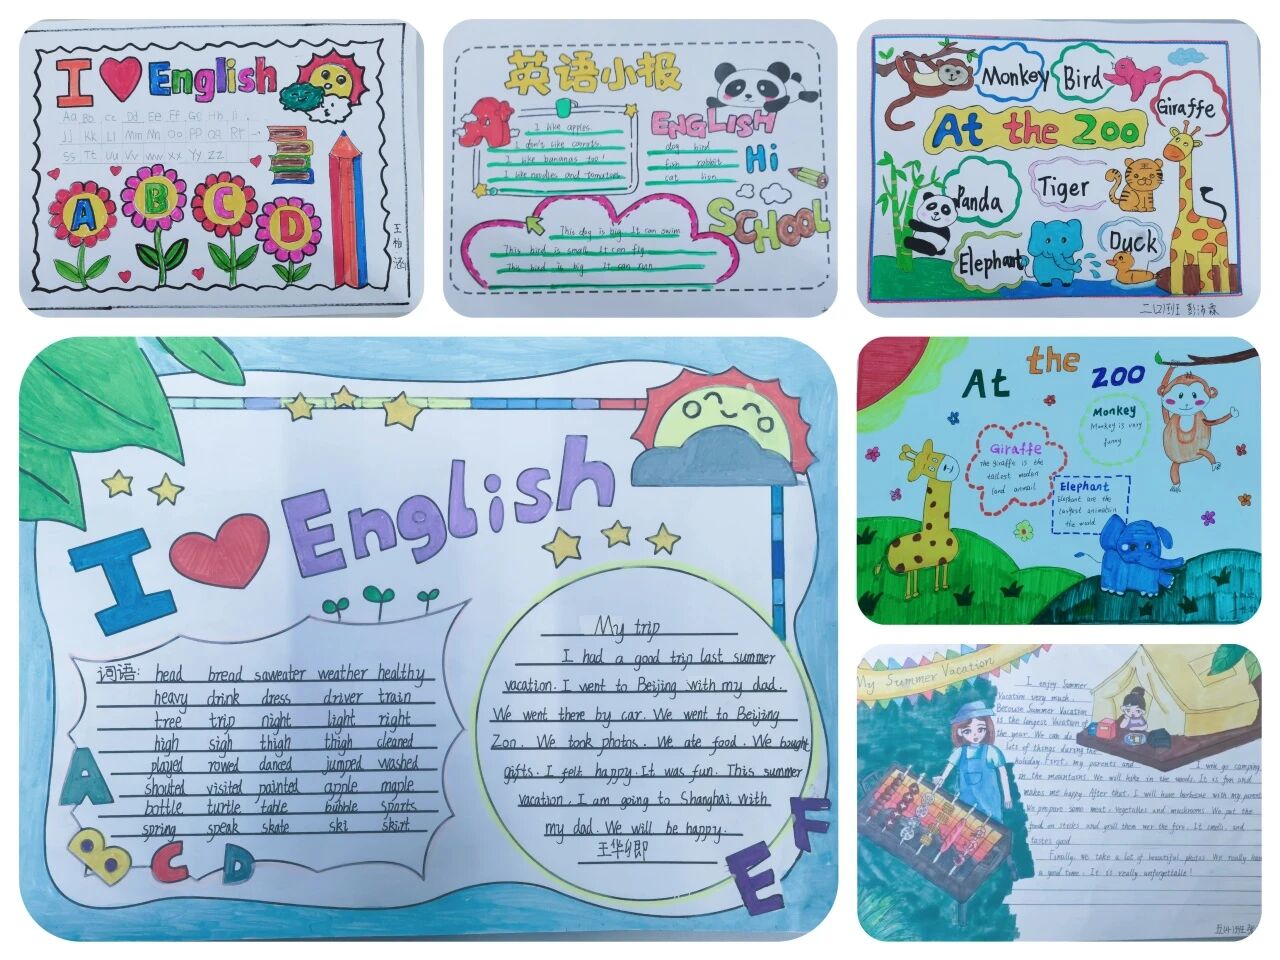 I English
Aa Bb cc Dd Ee Ff GG Hh Ii
Jj Kk Ll Mm Nn Oo PP QQ Rr
SS Tt Uu Vv ww xx Yy zz
A B C D
王柏涵
英语小报
I like apples.
I don't like carrots.
I like bananas too!
I like noodles and tomatoes.
ENGLISH
dog bird
fish rabbit
cat lion
Hi
SCHOOL
This dog is big. It can swim.
This bird is small. It can fly.
This bird is big. It can run.
Monkey Bird
Giraffe
At the Zoo
Panda
Tiger
Elephant
Duck
At the zoo
Monkey
Monkey is very
funny
Giraffe
The giraffe is the
tallest modern
land animail
Elephant
Elephant are the
largest animals in
the world
I English
词语: head bread saweater weather healthy
heavy drink dress driver train
tree trip night light right
high sigh thigh thigh cleaned
played rowed danced jumped washed
shouited visited painted apple maple
bottle turtle table bubble sparts
spring speak skate ski skirt
A
B C D
E F
My trip
I had a good trip last summer
vacation. I went to Beijing with my dad.
We went there by car. We went to Beijing
Zoo. We took photos. We ate food. We bought
gifts. I felt happy. It was fun. This summer
vacation, I am going to Shanghai with
my dad. We will be happy.
My Summer Vacation
I enjoy Summer
Vacation very much.
Because Summer Vacation
is the longest Vacation of
the year. We can do
lots of things during the
holiday. First, my parents and I will go camping
in the mountains. We will hike in the woods. It is fun and
makes me happy. After that, I will have barbecue with my parents
We prepare some meat, vegetables and mushrooms. We put the
food on sticks and grill them over the fire. It smells, and
tastes good
Finally, we take a lot of beautiful photos. We really have
a good time. It is really unforgettable!